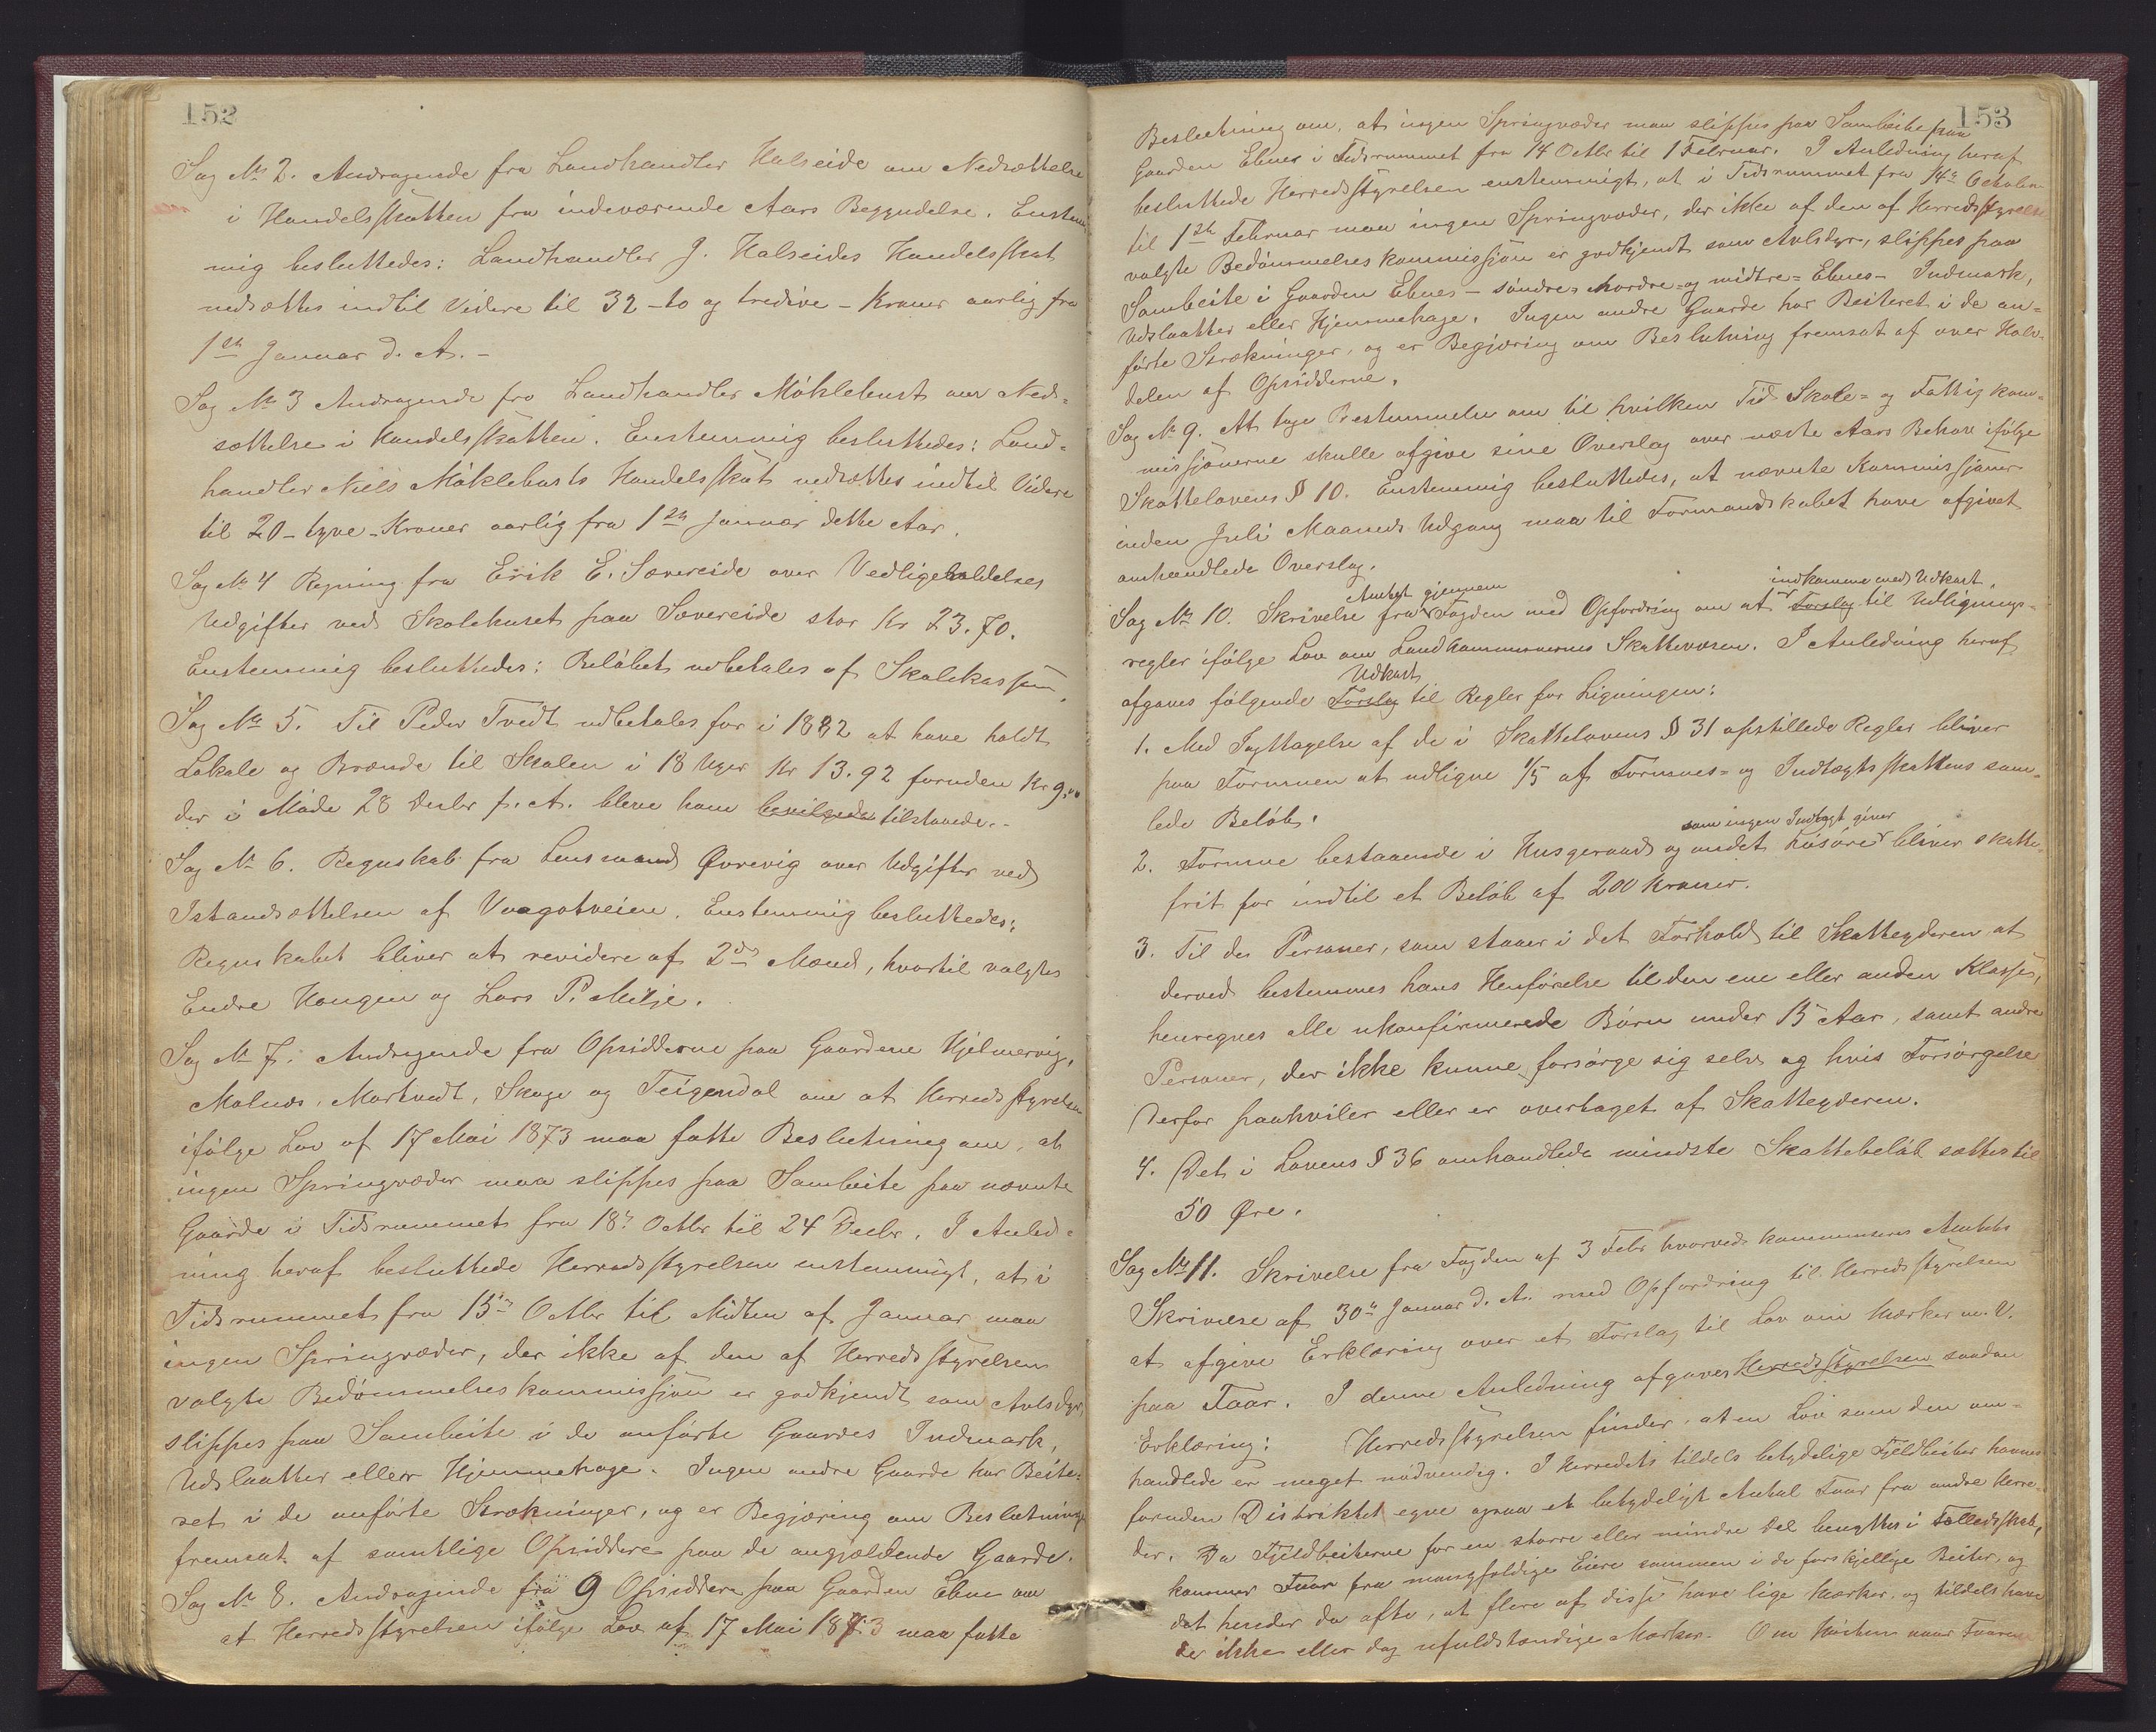 152
Sag No 2. Andragende fra Landhandler Halseide om Nedsættelse
i Handelsskatten fra indeværende Aars Begyndelse. Enstem
mig besluttedes: Landhandler J. Halseides Handelsskat
nedsættes indtil Videre til 32 - to og tredive - Kroner aarlig fra
1ste Januar d. A. -
Sag No 3 Andragende fra Landhandler Møklebust om Ned-
sættelse i Handelsskatten. Enstemmig besluttedes: Land-
handler Niels Møklebusts Handelsskat nedsættes indtil Videre
til 20 - tyve - Kroner aarlig fra 1ste Januar dette Aar.
Sag No 4 Regning fra Erik E. Sævereide over Vedligeholdelses
Udgifter ved Skolehuset paa Sævereide stor Kr 23.70.
Enstemmig besluttedes: Beløbet udbetales af Skolekassen.
Sag No 5. Til Peder Tvedt udbetales for i 1882 at have holdt
Lokale og Brænde til Skolen i 18 Uger Kr 13.92 foruden Kr 9,00
der i Møde 28 Decbr f. A. bleve ham bevilgede tilstaaede. -
Sag No 6. Regnskab fra Lensmand Øvrevig over Udgifter ved
Istandsættelsen af Vaagotveien. Enstemmig besluttedes:
Regnskabet bliver at revidere af 2de Mænd, hvortil valgtes
Endre Haugen og Lars P. Milje.
Sag No 7. Andragende fra Opsidderne paa Gaardene Hjelmervig,
Malnæs, Markvedt, Skage og Teigendal om at Herredsstyrelsen
ifølge Lov af 17 Mai 1873 maa fatte Beslutning om, at
ingen Springvæder maa slippes paa Sambeite paa nævnte
Gaarde i Tidsrummet fra 18de Octbr til 24 Decbr. I Anled-
ning heraf besluttede Herredsstyrelsen enstemmigt, at i
Tidsrummet fra 15de Octbr til Midten af Januar maa
ingen Springvæder, der ikke af den af Herredsstyrelsen
valgte Bedømmelseskommissjon er godkjendt som Avlsdyr,
slippes paa Sambeite i de anførte Gaardes Indmark,
Udslaatter eller Hjemmehage. Ingen andre Gaarde har Beite-
ret i de anførte Strækninger, og er Begjæring om Beslutning
fremsat af samtlige Opsiddere paa de angjældende Gaarde.
Sag No 8. Andragende fra 9 Opsiddere paa Gaarden Ebne om
at Herredsstyrelsen ifølge Lov af 17 Mai 1873 maa fatte
153
Beslutning om, at ingen Springvæder maa slippes paa Sambeite paa
Gaarden Ebnes i Tidsrummet fra 14 Octbr til 1 Februar. I Anledning heraf
besluttede Herredsstyrelsen enstemmigt, at i Tidsrummet fra 14de October
til 1ste Februar maa ingen Springvæder, der ikke af den af Herredsstyrelsen
valgte Bedømmelseskommissjon er godkjendt som Avlsdyr, slippes paa
Sambeite i Gaarden Ebnes - søndre- nordre- og midtre- Ebnes - Indmark,
Udslaatter eller Hjemmehage. Ingen andre Gaarde har Beiteret i de an-
førte Strækninger, og er Begjæring om Beslutning fremsat af over Halv-
delen af Opsidderne.
Sag No 9. At tage Bestemmelse om til hvilken Tid Skole- og Fattigkom-
missjonerne skulle afgive sine Overslag over næste Aars Behov ifølge
Skattelovens § 10. Enstemmig besluttedes, at nævnte Kommissjoner
inden Juli Maaneds Udgang maa til Formandskabet have afgivet
omhandlede Overslag.
Amtet gjennem indkomme med Udkast
Sag No 10. Skrivelse fra Fogden med Opfordring om at Forslag til Udlignings-
regler ifølge Lov om Landkommunernes Skattevæsen. I Anledning heraf
Udkast
afgaves følgende Forslag til Regler for Ligningen:
1. Med Iagttagelse af de i Skattelovens § 31 opstillede Regler bliver
paa Formuen at udligne 1/5 af Formues- og Indtægtsskattens sam-
lede Beløb.
som ingen Indtægt giver
2. Formue bestaaende i Husgeraad og andet Løsøre bliver skatte-
frit for indtil et Beløb af 200 Kroner.
3. Til de Personer, som staaer i det Forhold til Skatteyderen at
derved bestemmes hans Henførelse til den ene eller anden Klasse,
henregnes alle ukonfirmerede Børn under 15 Aar, samt andre
Personer, der ikke kunne forsørge sig selv og hvis Forsørgelse
derfor paahviler eller er overtaget af Skatteyderen.
4. Det i Lovens § 36 omhandlede mindste Skattebeløb sættes til
50 Øre.
Sag No 11. Skrivelse fra Fogden af 3 Febr hvorved kommuneres Amtets
Skrivelse af 30te Januar d. A. med Opfordring til Herredsstyrelsen
at afgive Erklæring over et Forslag til Lov om Mærker m. V.
paa Faar. I denne Anledning afgaves Herredsstyrelsen saadan
Erklæring: Herredsstyrelsen finder, at en Lov som den om-
handlede er meget nødvendig. I Herredets tildels betydelige Fjeldbeiter havnes
foruden Distriktet egne ogsaa et betydeligt Antal Faar fra andre Herre-
der. Da Fjeldbeiterne for en større eller mindre Del benyttes i Fælledsskab,
kommer Faar fra mangfoldige Eiere sammen i de forskjellige Beiter, og
det hender da ofte, at flere af disse have lige Mærker, og tildels have
de ikke eller dog ufuldstændige Mærker. Om Høsten naar Faarene